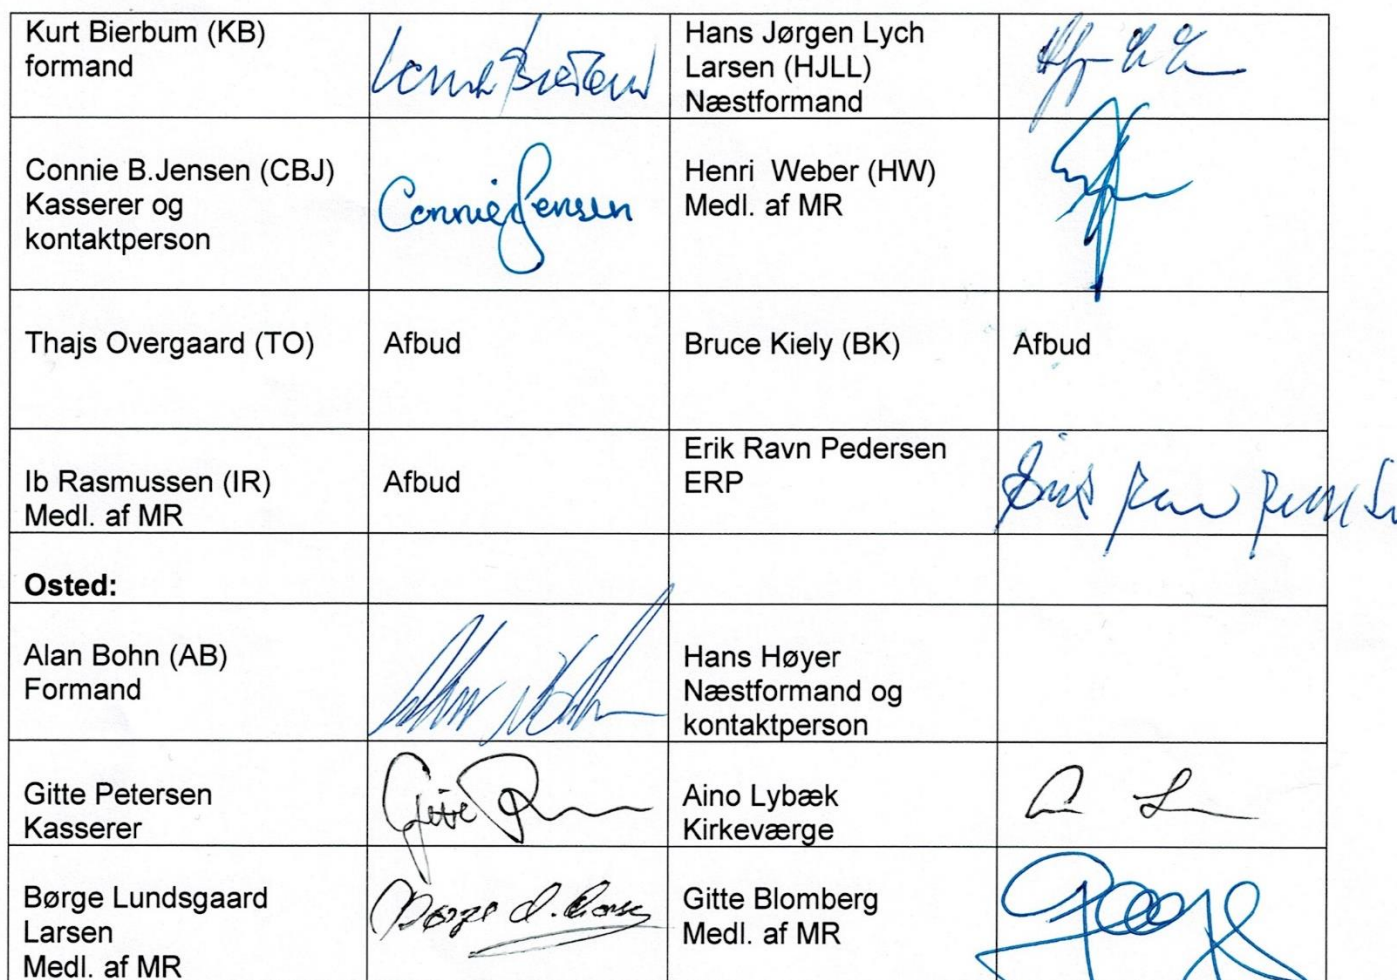 Kurt Bierbum (KB)
formand
Hans Jørgen Lych
Larsen (HJLL)
Næstformand
Connie B.Jensen (CBJ)
Kasserer og
kontaktperson
Connie Jensen
Henri Weber (HW)
Medl. af MR
Thajs Overgaard (TO)
Afbud
Bruce Kiely (BK)
Afbud
Ib Rasmussen (IR)
Medl. af MR
Afbud
Erik Ravn Pedersen
ERP
Osted:
Alan Bohn (AB)
Formand
Hans Høyer
Næstformand og
kontaktperson
Gitte Petersen
Kasserer
Gitte
Aino Lybæk
Kirkeværge
Børge Lundsgaard
Larsen
Medl. af MR
Gitte Blomberg
Medl. af MR